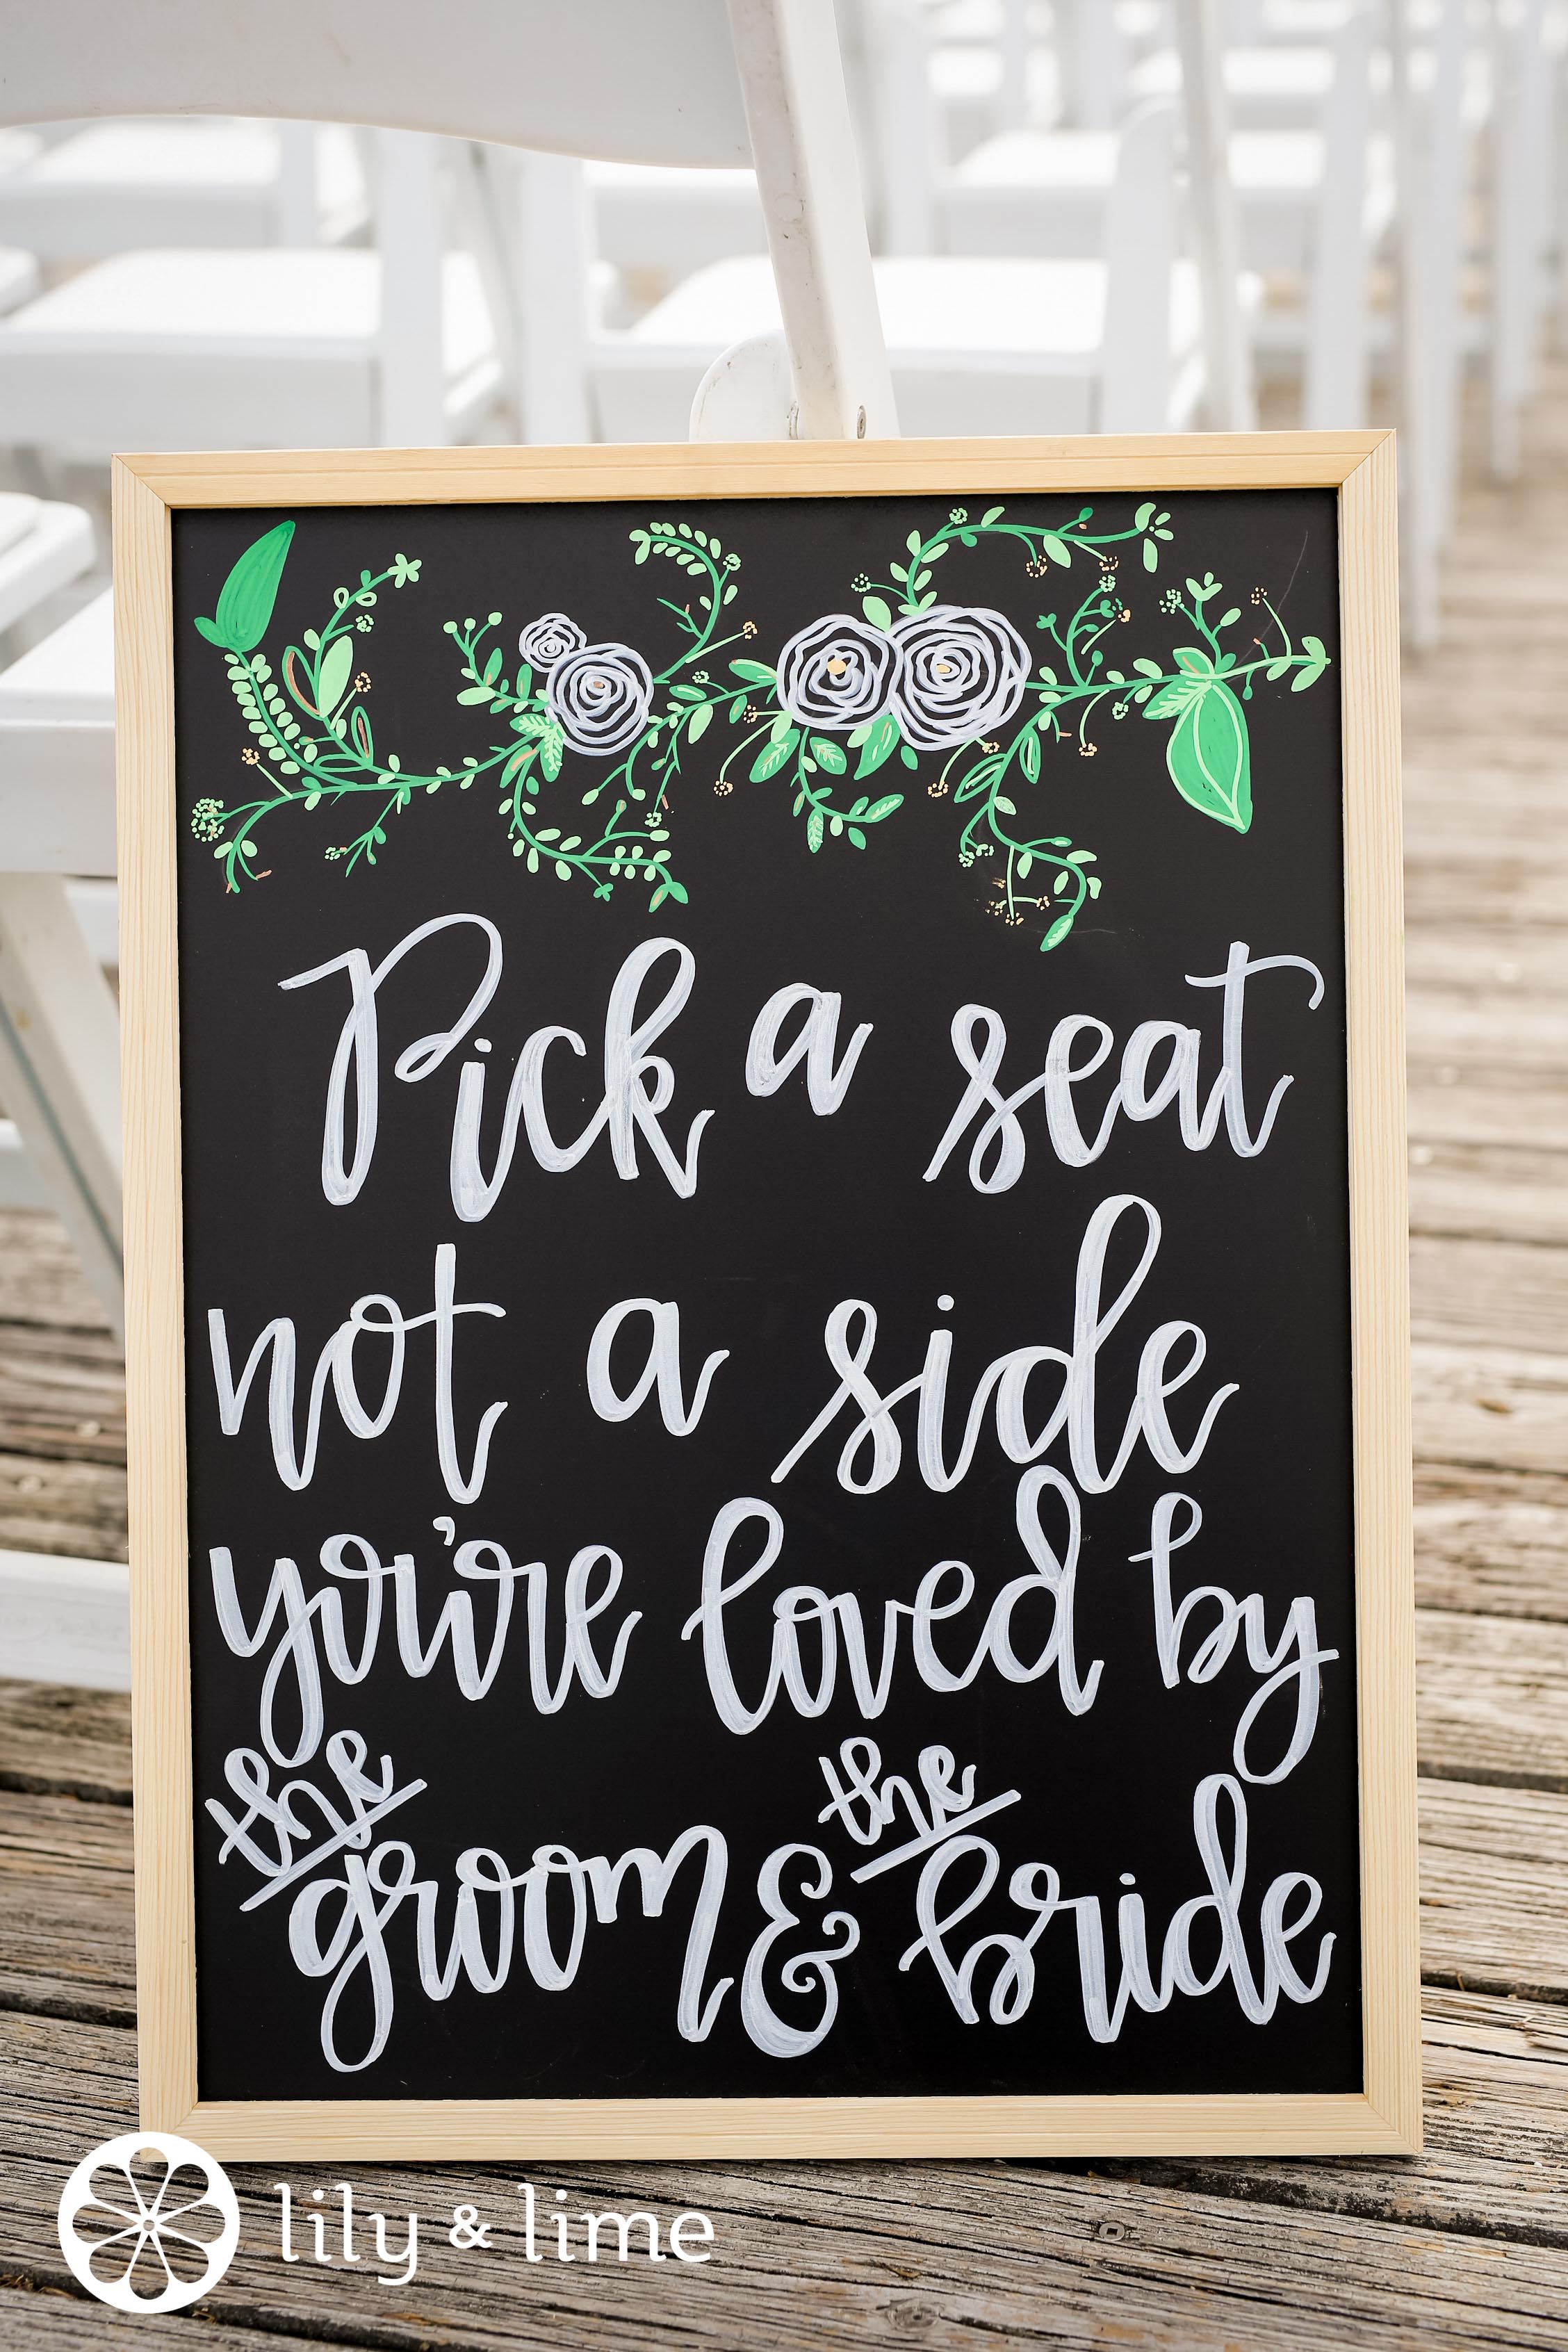 Pick a seat
not a side
you're loved by
the groom & the bride
lily & lime